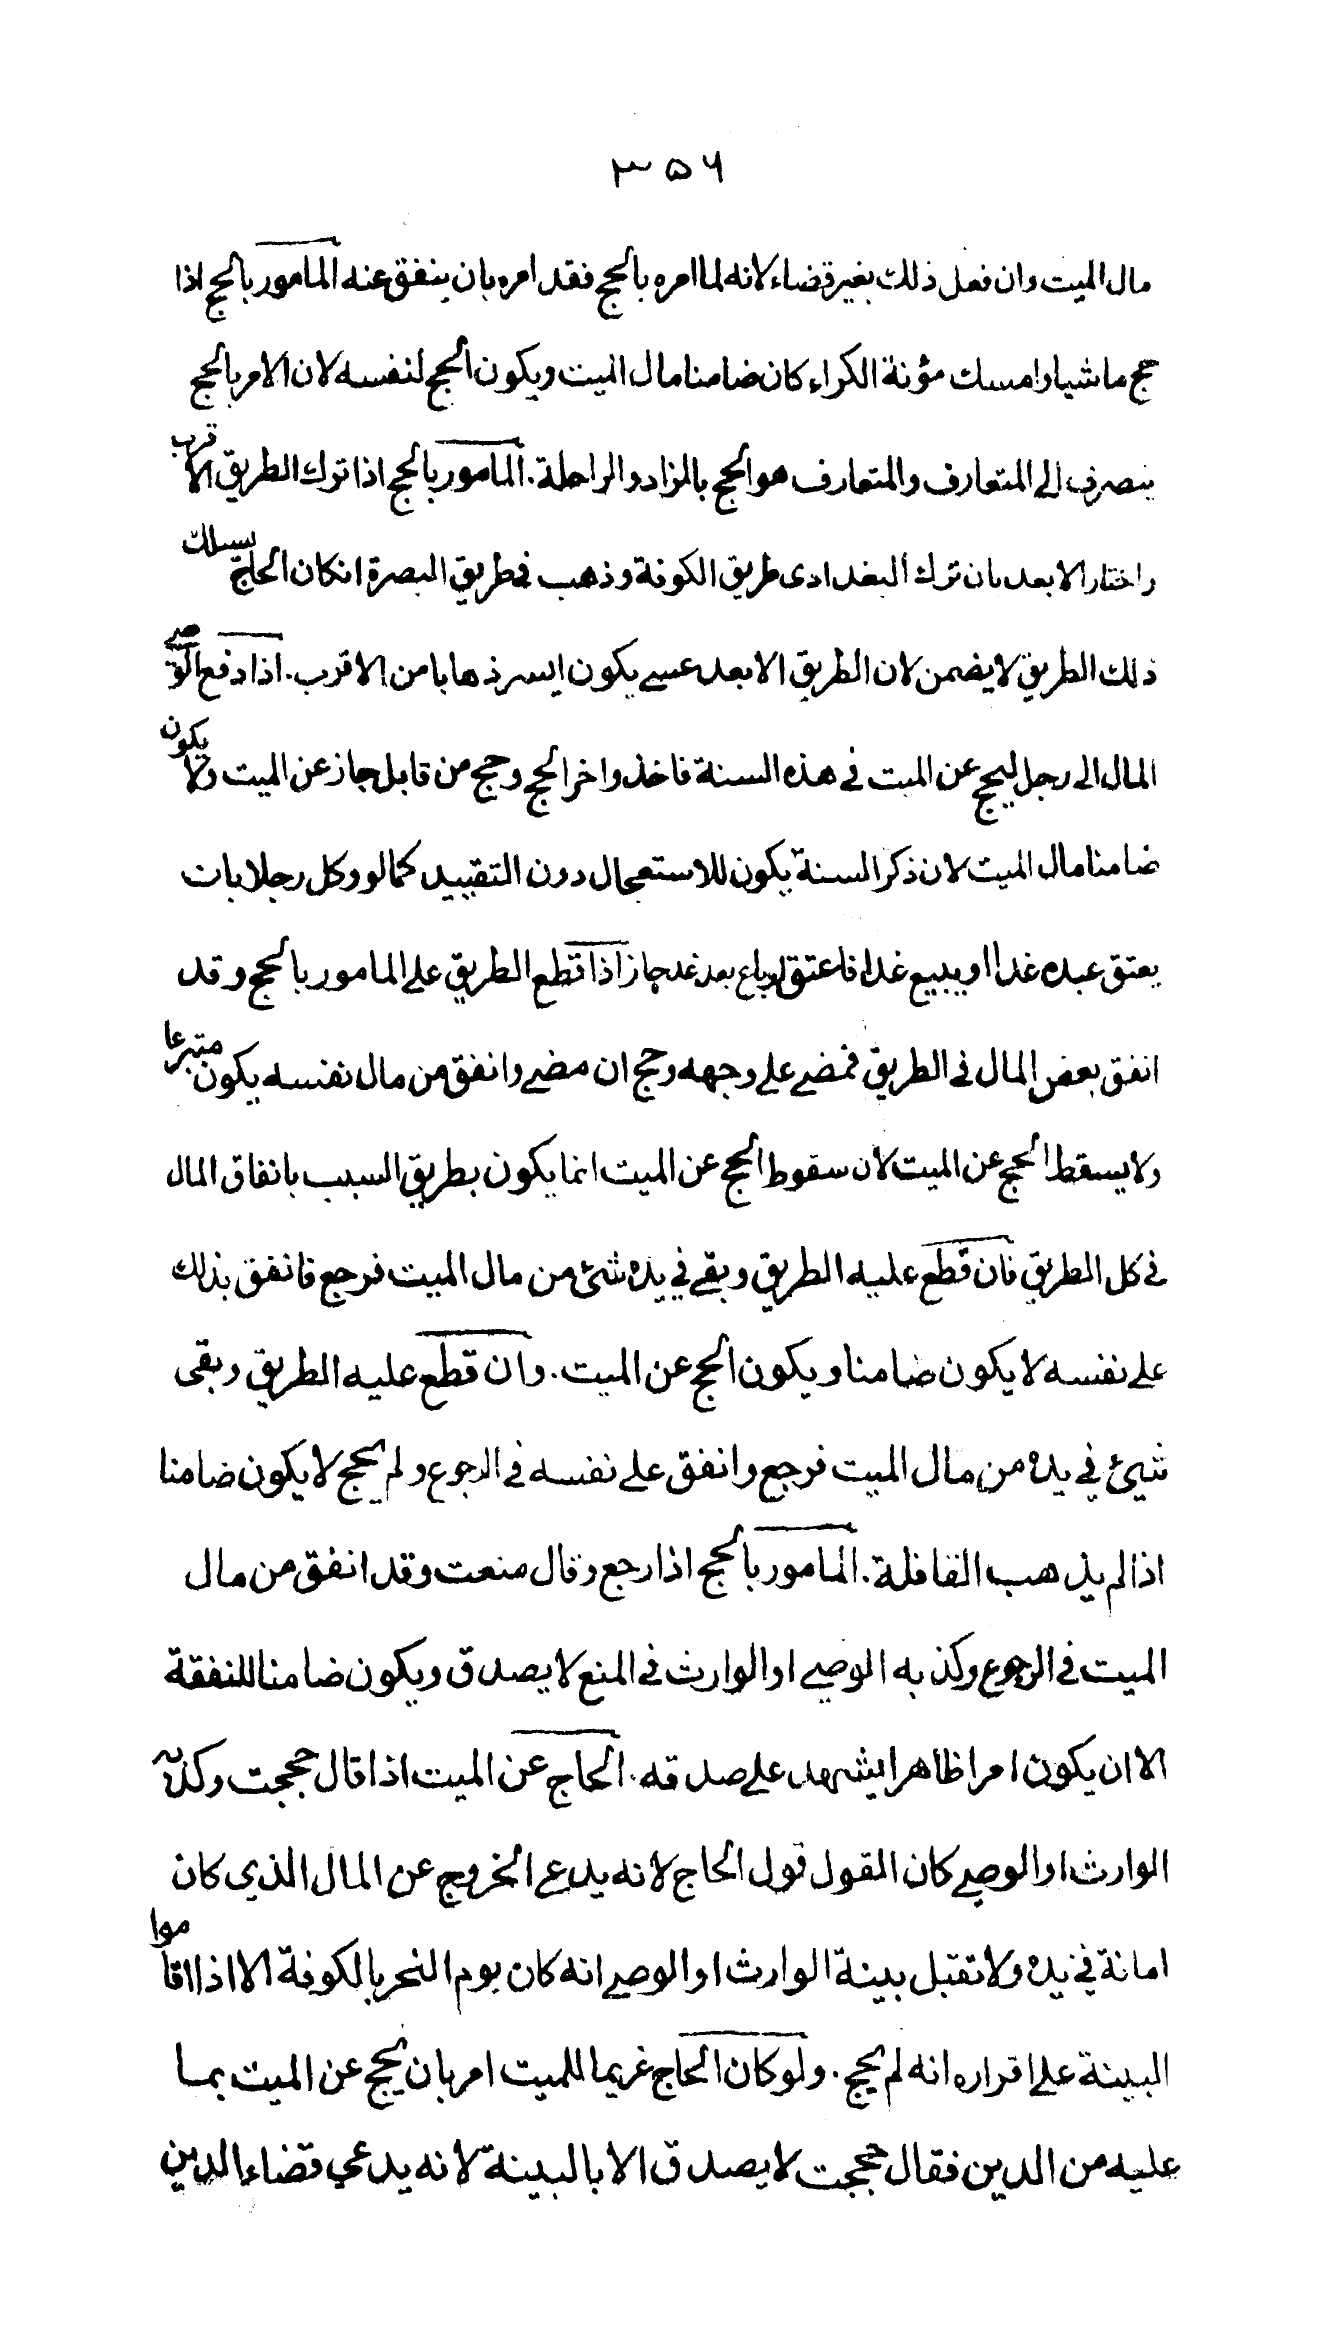 ۳۵۶
مال الميت وان فعل ذلك بغير قضاء لانه لما امره بالحج فقد امره بان ينفق عنه المامور بالحج اذا
حج ماشيا وامسك مؤنة الكراء كان ضامنا مال الميت ويكون الحج لنفسه لان الامر بالحج
ينصرف الى المتعارف والمتعارف هو الحج بالزاد والراحلة. المامور بالحج اذا ترك الطريق الاقرب
واختار الابعد بان ترك البغدادى طريق الكوفة وذهب فى طريق البصرة انكان الحاج يسلك
ذلك الطريق لا يضمن لان الطريق الابعد عسے يكون ايسر ذهابا من الاقرب. اذا دفع الوصے
المال الى رجل ليحج عن الميت فى هذه السنة فاخذ واخر الحج وحج من قابل جاز عن الميت ولا يكون
ضامنا مال الميت لان ذكر السنة يكون للاستعجال دون التقييد كما لو وكل رجلا بان
يعتق عبده غدا او يبيع غدا فاعتق او باع بعد غد جاز اذا قطع الطريق على المامور بالحج وقد
انفق بعض المال فى الطريق فمضے على وجهه وحج ان مضے وانفق من مال نفسه يكون متبرعا
ولا يسقط الحج عن الميت لان سقوط الحج عن الميت انما يكون بطريق السبب بانفاق المال
فى كل الطريق فان قطع عليه الطريق وبقے فى يده شئ من مال الميت فرجع فانفق بذلك
على نفسه لا يكون ضامنا ويكون الحج عن الميت. وان قطع عليه الطريق وبقى
شيئ في يده من مال الميت فرجع وانفق على نفسه فى الرجوع ولم يحج لا يكون ضامنا
اذا لم يذهب القافلة. المامور بالحج اذا رجع وقال منعت وقد انفق من مال
الميت فى الرجوع وكذبه الوصے او الوارث فى المنع لا يصدق ويكون ضامنا للنفقة
الا ان يكون امرا ظاهرا يشهد على صدقه. الحاج عن الميت اذا قال حججت وكذبه
الوارث او الوصے كان القول قول الحاج لانه يدعے الخروج عن المال الذي كان
امانة في يده ولا تقبل بينة الوارث او الوصے انه كان يوم النحر بالكوفة الا اذا اقاموا
البينة على اقراره انه لم يحج. ولو كان الحاج غريما للميت امر بان يحج عن الميت بما
عليه من الدين فقال حججت لا يصدق الا بالبينة لانه يدعي قضاء الدين